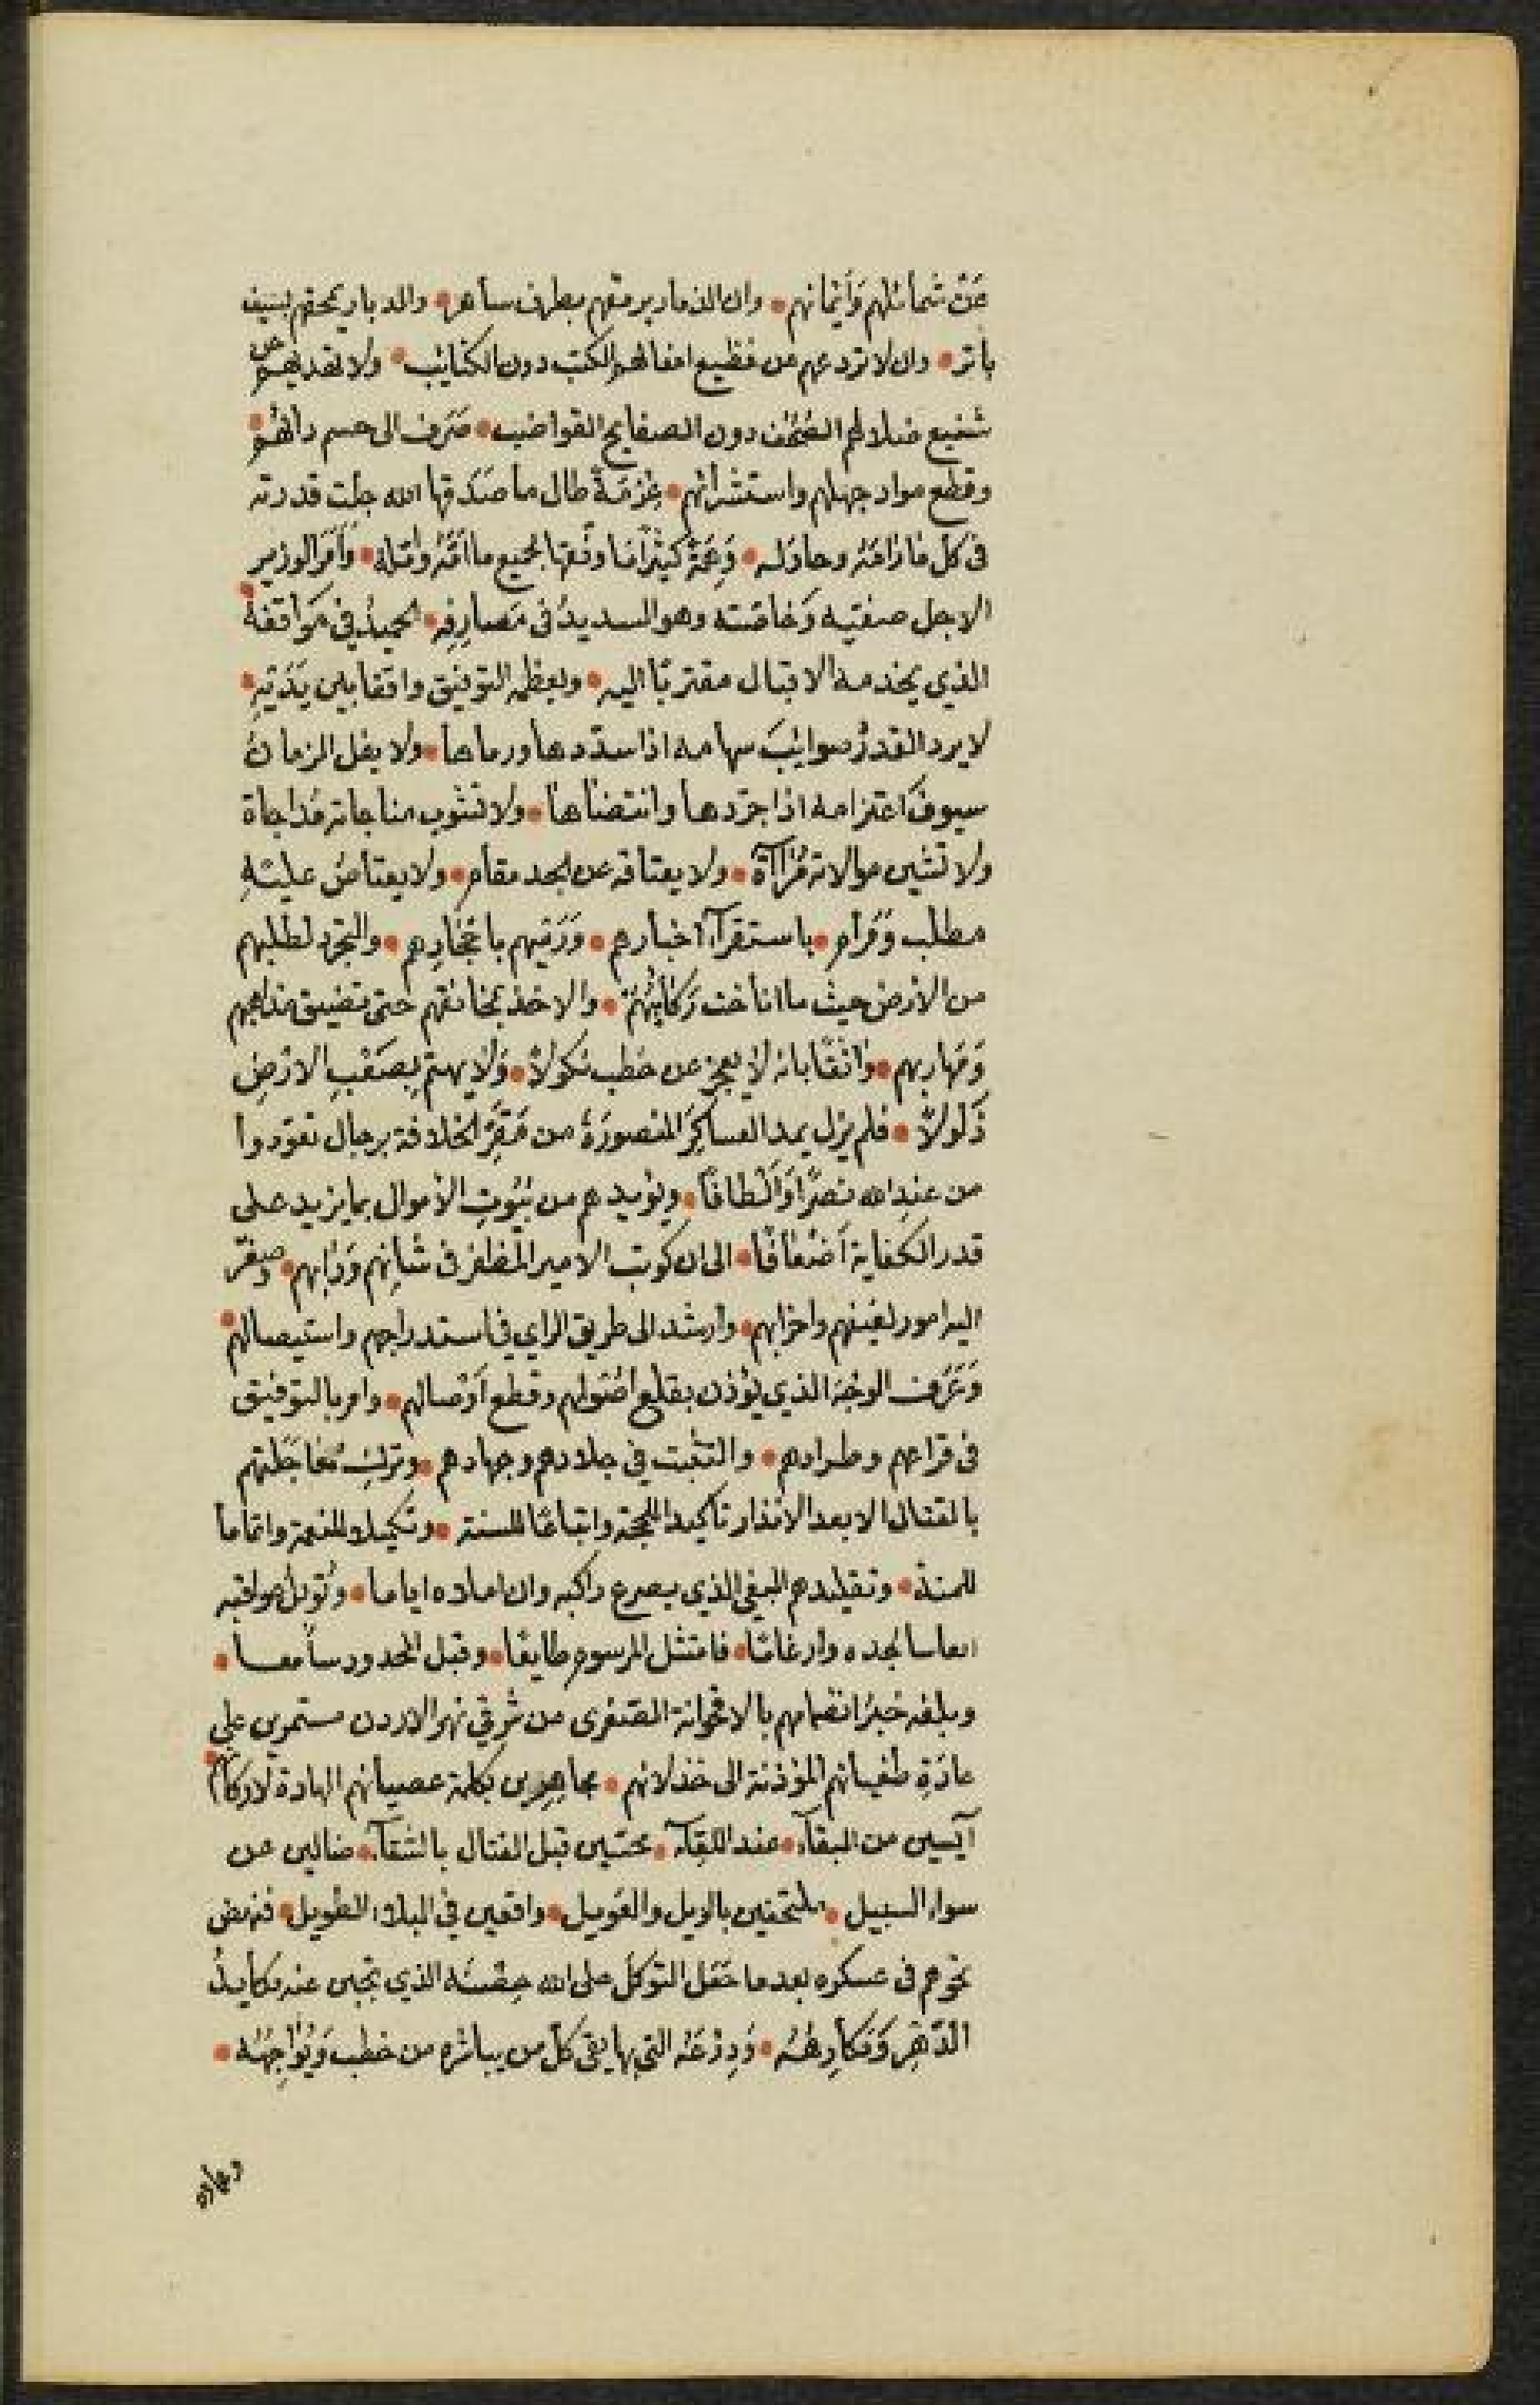 عَنْ شمائلهم وَأيمانهم • وان الدمار يرمقهم بطرف ساهر • والدبار يمحقهم بسيف
باتر • وان لا تردعهم من فظيع افعالهم الكتب دون الكتائب • ولا تعديهم عن
شنيع ضلالهم الصُحُف دون الصفايح القواضب • صَرَف الى حسم دائهم •
وقطع مواد جهلهم واستشرائهم • عَزمَةً طال ما صَدَقها الله جلت قدرته
فى كل ما زامَنَه وحاوله • وَهِمَّةً كثيرًا مَا وفّقها لجميع ما امَّهُ واتاه • وَأمَرَ الوزير
الاجل صفيّه وَخاصّته وهو السديدُ فى مَصارِفِه • الحميدُ في مَوَاقفهُ •
الذي يخدمه الاقبال مقتربًا اليه • ويعظمه التوفيق واقفا بين يَدَيْهِ •
لا يرد القدرُ صوائبَ سهامه اذا سدّدها ورماها • ولا يفل الزمانُ
سيوفَ اعتزامه اذا جرّدها وانتضاها • ولا تشوب مناجاته مُداجاة
ولا تشين موالاته مُرَاآة • ولا يعتاقه عن المجد مقام • ولا يعتاصُ عليْهِ
مطلب وَمَرام • باستقرآء اخبارهم • وَرَميهم باحجارهم • والتجرّد لطلبهم
من الارض حيث ما اناخت رَكائِبُهُمْ • والاخذ بمخانقهم حتى تضيق مذاهبهم
وَمَهاربهم • وَاثقًا بانه لا يعجز عن خطب نكولاً • وَلا يهتم بِصَعْبِ الارْضِ
ذَلولاً • فلم يزل يمد العساكِرَ المنصورَةَ من مَقَرِّ الخلافة برجال تعوّدوا
من عندِ الله نصرًا وَألطافًا • ويؤيدهم من بُيُوتِ الأموال بما يزيد على
قدر الكفاية أضعافًا • الى ان كوتب الامير المظفر فى شأنِهم وَدَابهم • وَصغّر
اليه امور لفيفهم واحزابهم • وارشد الى طريق الراي في استدراجهم واستيصالهم •
وَعَرَف الوجْهَ الذي يؤذن بقلع اصُولهم وقطع أوْصالهم • وامر بالتوفيق
فى قراعهم وطرادهم • والتثبت في جلادهم وجهادهم • وتركِ مُعاجَلتهم
بالقتال الا بعد الانذار تاكيدا للحجة واتباعًا للسنة • وتكميلا للنعمة واتماما
للمنة • وتقليدهم البغى الذي يصرع راكبه وان امهلاه اياما • وتُوبِلُ عواقبه
اتعاسا لجده وارغامًا • فامتثل المرسوم طايعًا • وقبل المحدود سامعا •
وبلغه خبرُ انضمامهم بالاقحوانة الصغرى من شرقي نهر الاردن مستمرين على
عادَةِ طغيانهم المؤذنة الى خذلانهم • مجاهرين بكلمة عصيانهم الهادة لاركانهم •
آيسين من البقآء • عند اللقآء • محتبين قبل القتال بالشقآء • ضالين عن
سواء السبيل • ملتحفين بالويل والعَويل • واقعين في البلاء الطويل • فنهض
نحوهم فى عسكره بعد ما جَعَل التوكل على الله حِصْنَه الذي يحجبه عنه مكايدُ
الدّهْرِ وَمَكارِهُهُ • وَدِرْعَهُ التي بها يقى كلّ من يباشره من خطب وَيُوَاجِهُهُ •